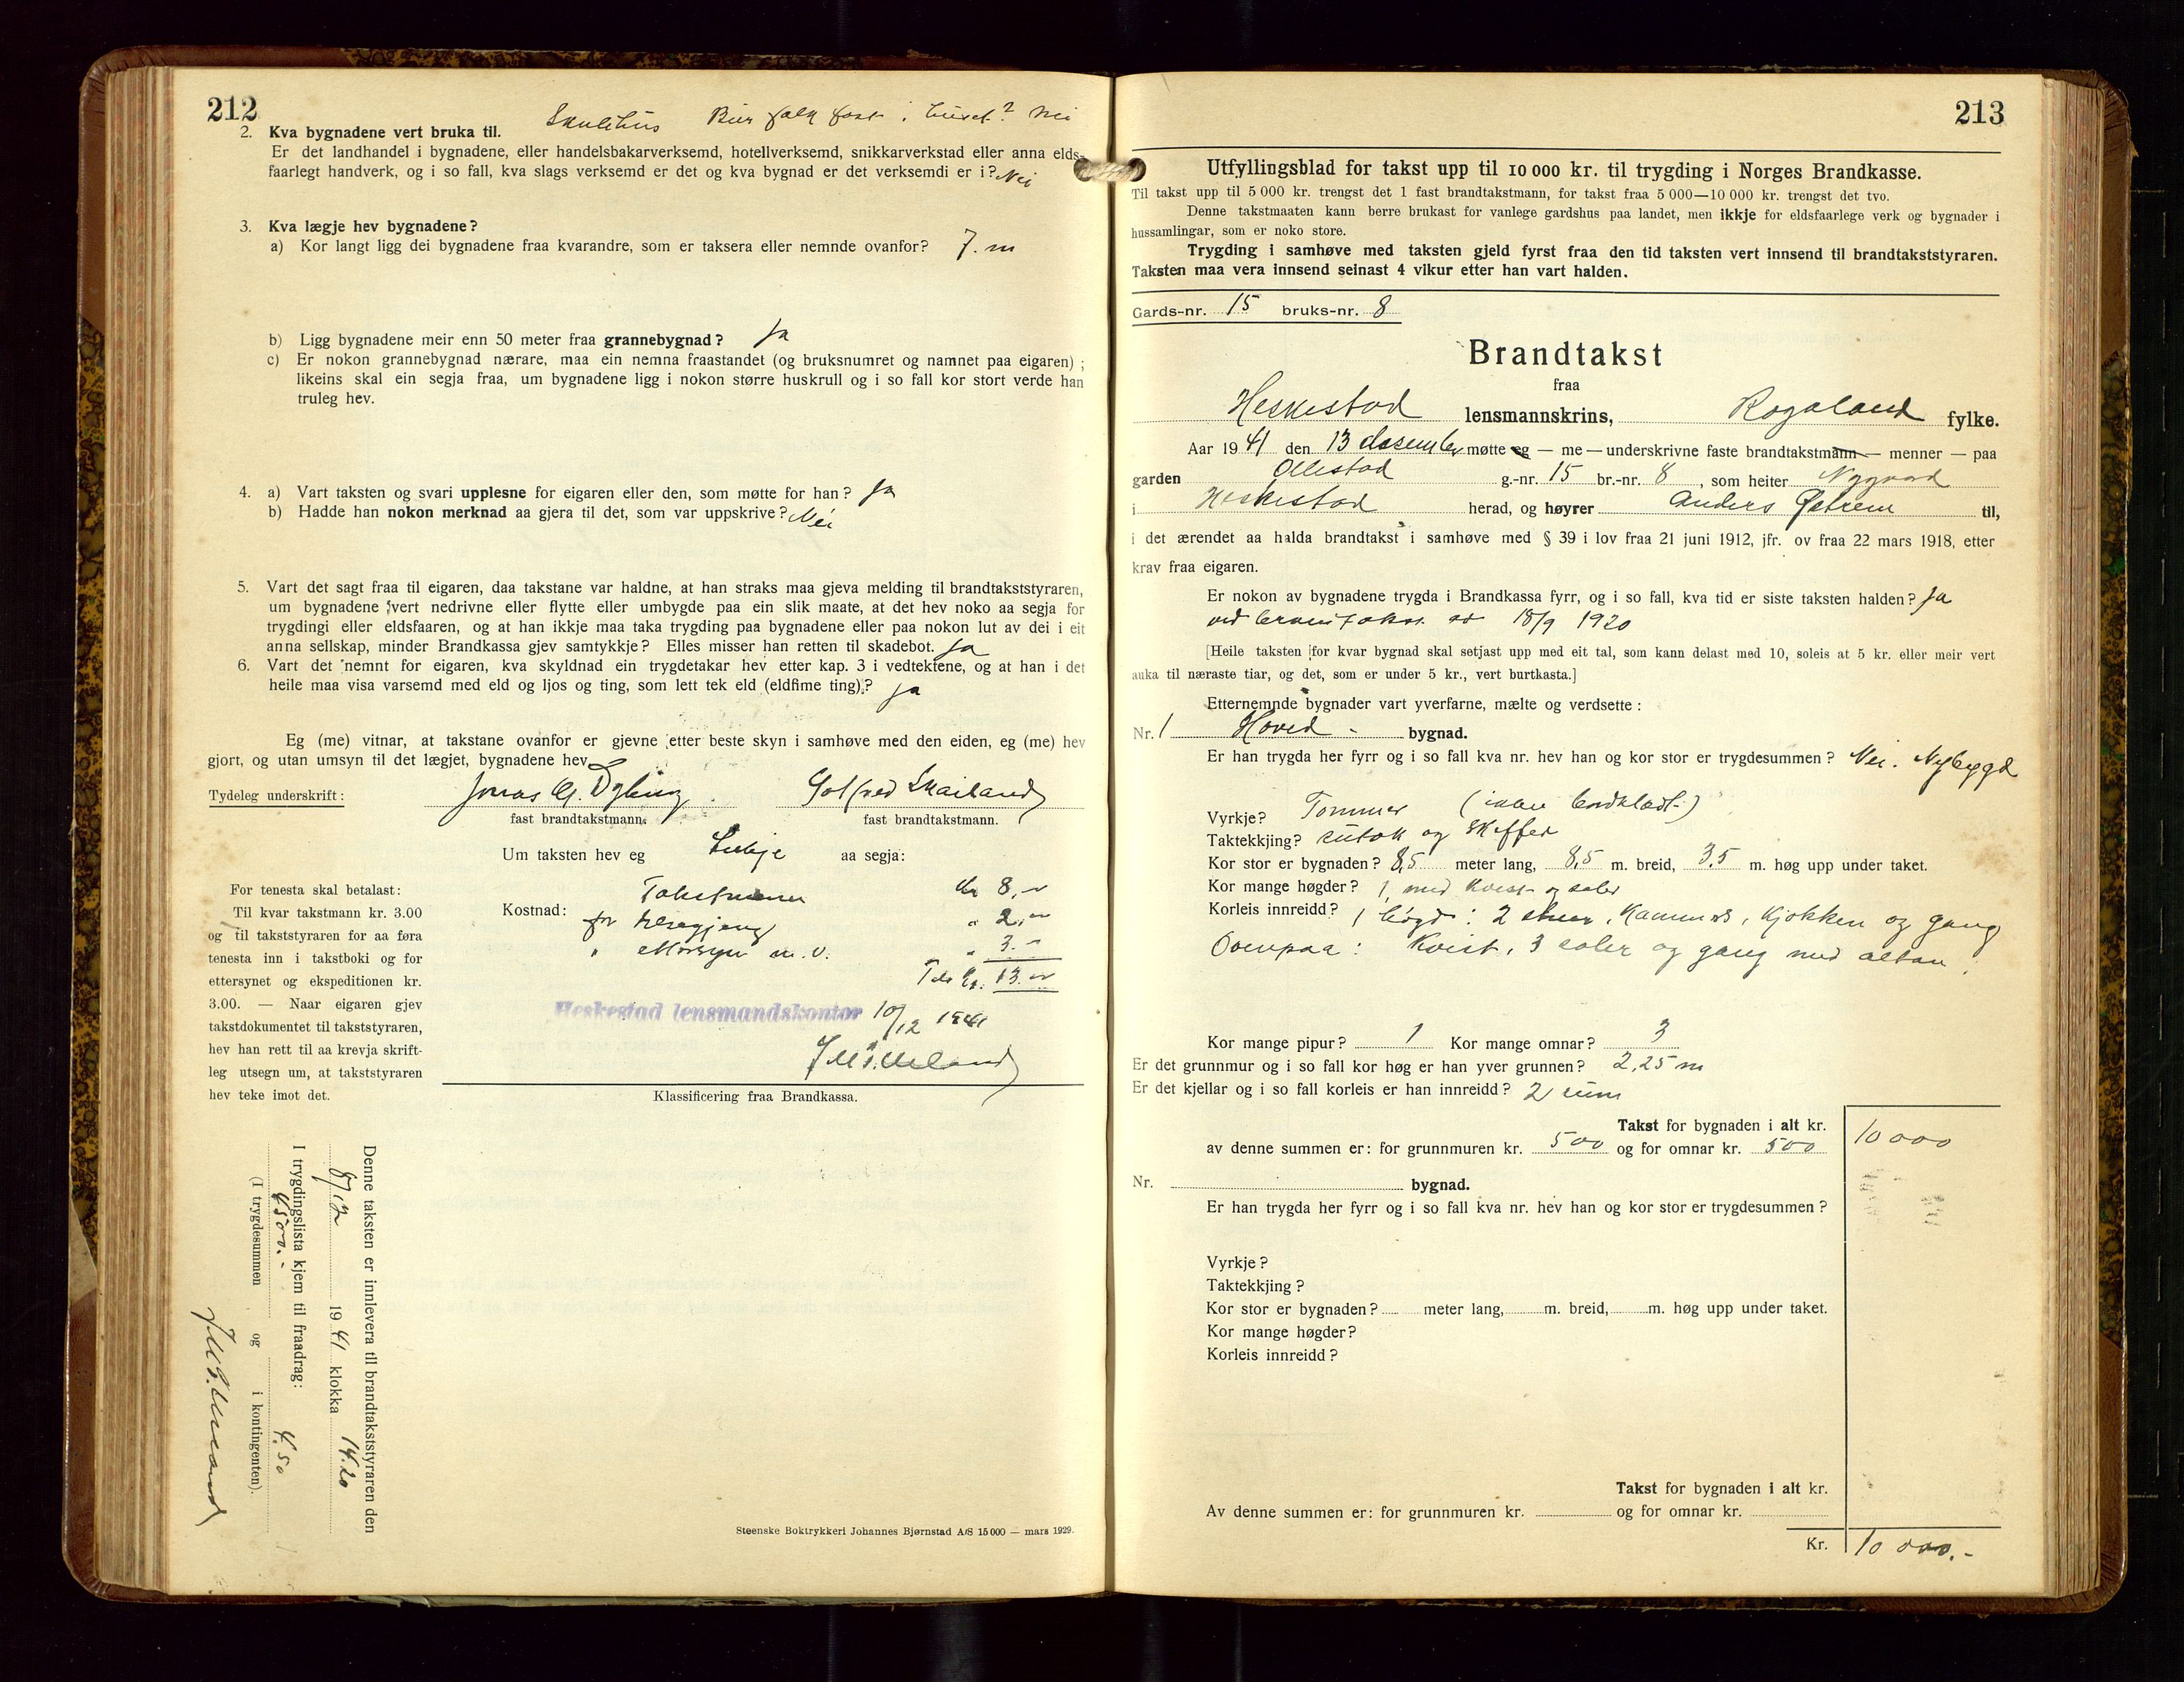 212
2. Kva bygnadene vert bruka til. Skulehus Bur folk fast i huset? Nei
Er det landhandel i bygnadene, eller handelsbakarverksemd, hotellverksemd, snikkarverkstad eller anna elds-
faarlegt handverk, og i so fall, kva slags verksemd er det og kva bygnad er det verksemdi er i? Nei
3. Kva lægje hev bygnadene?
a) Kor langt ligg dei bygnadene fraa kvarandre, som er taksera eller nemnde ovanfor? 7. m
b) Ligg bygnadene meir enn 50 meter fraa grannebygnad? Ja
c) Er nokon grannebygnad nærare, maa ein nemna fraastandet (og bruksnumret og namnet paa eigaren);
likeins skal ein segja fraa, um bygnadene ligg i nokon større huskrull og i so fall kor stort verde han
truleg hev.
4. a) Vart taksten og svari upplesne for eigaren eller den, som møtte for han? Ja
b) Hadde han nokon merknad aa gjera til det, som var uppskrive? Nei
5. Vart det sagt fraa til eigaren, daa takstane var haldne, at han straks maa gjeva melding til brandtakststyraren,
um bygnadene vert nedrivne eller flytte eller umbygde paa ein slik maate, at det hev noko aa segja for
trygdingi eller eldsfaaren, og at han ikkje maa taka trygding paa bygnadene eller paa nokon lut av dei i eit
anna sellskap, minder Brandkassa gjev samtykkje? Elles misser han retten til skadebot. Ja
6. Vart det nemnt for eigaren, kva skyldnad ein trygdetakar hev etter kap. 3 i vedtektene, og at han i det
heile maa visa varsemd med eld og ljos og ting, som lett tek eld (eldfime ting)? Ja
Eg (me) vitnar, at takstane ovanfor er gjevne etter beste skyn i samhøve med den eiden, eg (me) hev
gjort, og utan umsyn til det lægjet, bygnadene hev.
Tydeleg underskrift: Jonas G. Dybing Gotfred Skailand
fast brandtakstmann. fast brandtakstmann.
Um taksten hev eg Inkje aa segja:
Kostnad: Takstmenn kr 8,-
for skrivgjeng " 2,-
" 3.-
Tils kr. 13.-
Heskestad lensmandskontor 10/12 1941
For tenesta skal betalast:
Til kvar takstmann kr. 3.00
og til takststyraren for aa føra
tenesta inn i takstboki og for
ettersynet og ekspeditionen kr.
3.00. — Naar eigaren gjev
takstdokumentet til takststyraren,
hev han rett til aa krevja skrift-
leg utsegn um, at takststyraren
hev teke imot det.
Klassificering fraa Brandkassa.
Denne taksten er innlevera til brandtakststyraren den
8/12 1941 klokka 14.20
I trygdingslista kjem til fraadrag:
4500.- 4.50
(I trygdesummen og i kontingenten).
Steenske Boktrykkeri Johannes Bjørnstad A/S 15 000 — mars 1929.
213
Utfyllingsblad for takst upp til 10 000 kr. til trygding i Norges Brandkasse.
Til takst upp til 5 000 kr. trengst det 1 fast brandtakstmann, for takst fraa 5 000—10 000 kr. trengst det tvo.
Denne takstmaaten kann berre brukast for vanlege gardshus paa landet, men ikkje for eldsfaarlege verk og bygnader i
hussamlingar, som er noko store.
Trygding i samhøve med taksten gjeld fyrst fraa den tid taksten vert innsend til brandtakststyraren.
Taksten maa vera innsend seinast 4 vikur etter han vart halden.
Gards-nr. 15 bruks-nr. 8
Brandtakst
fraa
Heskestad lensmannskrins, Rogaland fylke.
Aar 1941 den 13 desember møtte eg — me — underskrivne faste brandtakstmann — menner — paa
garden Ollestad g.-nr. 15 br.-nr. 8, som heiter Nygaard
i Heskestad herad, og høyrer Anders Østrem til,
i det ærendet aa halda brandtakst i samhøve med § 39 i lov fraa 21 juni 1912, jfr. ov fraa 22 mars 1918, etter
krav fraa eigaren.
Er nokon av bygnadene trygda i Brandkassa fyrr, og i so fall, kva tid er siste taksten halden? Ja
ved branntakst av 18/9 1920
[Heile taksten for kvar bygnad skal setjast upp med eit tal, som kann delast med 10, soleis at 5 kr. eller meir vert
auka til næraste tiar, og det, som er under 5 kr., vert burtkasta.]
Etternemnde bygnader vart yverfarne, mælte og verdsette:
Nr. 1 Hoved - bygnad.
Er han trygda her fyrr og i so fall kva nr. hev han og kor stor er trygdesummen? Nei. Nybygd
Vyrkje? Tømmer (innv bordklædt)
Taktekkjing? sutak og skiffer
Kor stor er bygnaden? 8,5 meter lang, 8,5 m. breid, 3,5 m. høg upp under taket.
Kor mange høgder? 1 med kvist og saler
Korleis innreidd? 1 høgd: 2 stuer, kammers, kjøkken og gang
Ovenpaa: Kvist, 3 saler og gang med altan.
Kor mange pipur? 1 Kor mange omnar? 3
Er det grunnmur og i so fall kor høg er han yver grunnen? 2,25 m
Er det kjellar og i so fall korleis er han innreidd? 2 rum
Takst for bygnaden i alt kr. 10 000
av denne summen er: for grunnmuren kr. 500 og for omnar kr. 500
Nr. bygnad.
Er han trygda her fyrr og i so fall kva nr. hev han og kor stor er trygdesummen?
Vyrkje?
Taktekkjing?
Kor stor er bygnaden? meter lang, m. breid, m. høg upp under taket.
Kor mange høgder?
Korleis innreidd?
Takst for bygnaden i alt kr.
Av denne summen er: for grunnmuren kr. og for omnar kr.
Kr. 10 000.-